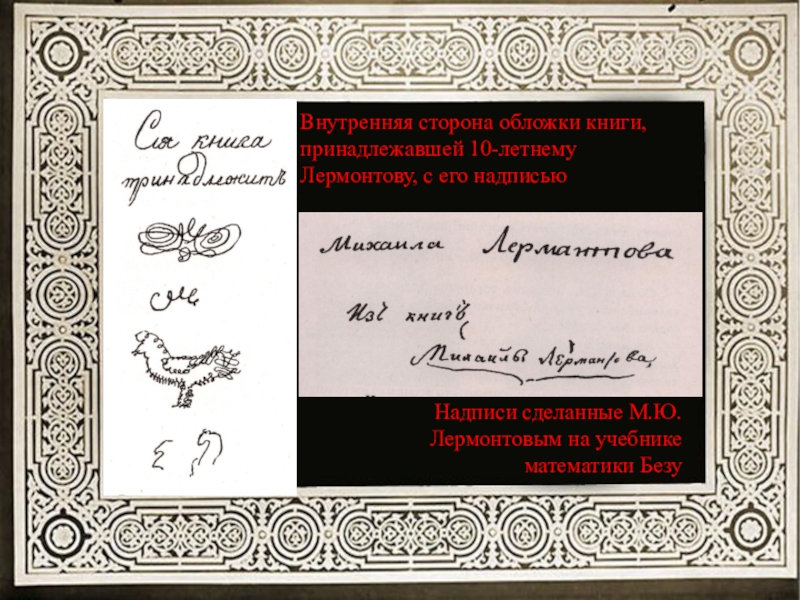 Сія книга
принадлежитъ
Внутренняя сторона обложки книги,
принадлежавшей 10-летнему
Лермонтову, с его надписью
Михаила Лермантова
Изъ книгъ
Михайлы Лермантова,
Надписи сделанные М.Ю.
Лермонтовым на учебнике
математики Безу